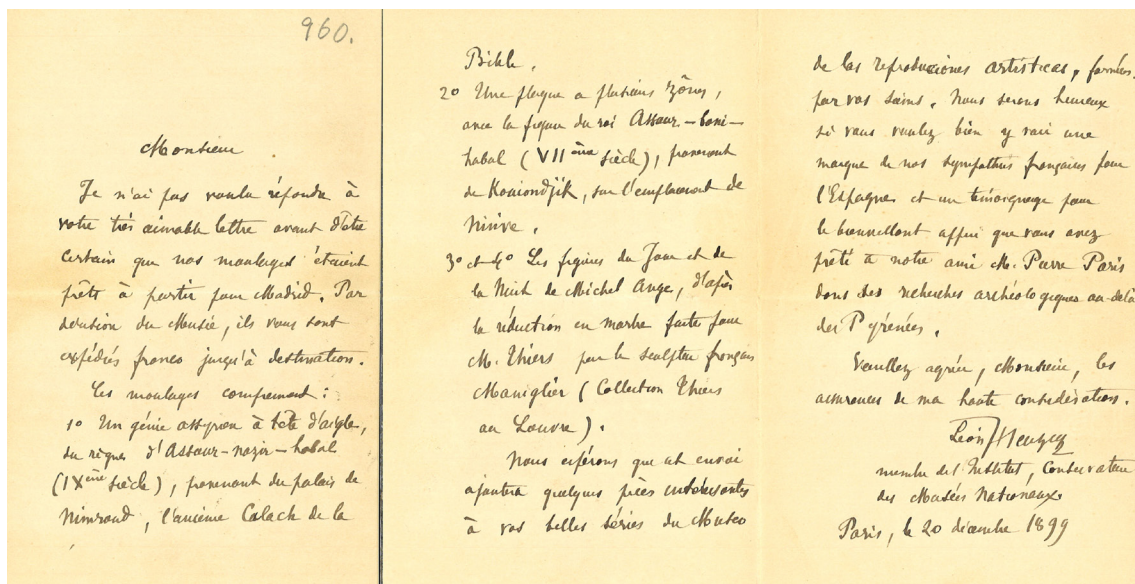 960.
Monsieur
Je n'ai pas voulu répondre à
votre très aimable lettre avant d'être
certain que nos moulages étaient
prêts à partir pour Madrid. Par
décision du Musée, ils vous sont
expédiés franco jusqu'à destination.
Les moulages comprennent :
1º Un génie assyrien à tête d'aigle,
du règne d'Assour-nazir-habal
(IXème siècle), provenant du palais de
Nimroud, l'ancienne Calach de la
Bible.
2º Une plaque à plusieurs zônes,
avec la figure du roi Assour-bani-
habal (VIIème siècle), provenant
de Kouiondjik, sur l'emplacement de
Ninive.
3º et 4º Les figures du Jour et de
la Nuit de Michel Ange, d'après
la réduction en marbre faite pour
M. Thiers par le sculpteur français
Maniglier (Collection Thiers
au Louvre).
Nous espérons que cet envoi
ajoutera quelques pièces intéressantes
à vos belles séries du Museo
de las reproducciones artisticas, formées
par vos soins. Nous serons heureux
si vous voulez bien y voir une
marque de nos sympathies françaises pour
l'Espagne et un témoignage pour
le bienveillant appui que vous avez
prêté à notre ami M. Pierre Paris
dans ses recherches archéologiques au-delà
des Pyrénées.
Veuillez agréer, Monsieur, les
assurances de ma haute considération.
Léon Heuzey
membre de l'Institut, Conservateur
des Musées Nationaux
Paris, le 20 décembre 1899